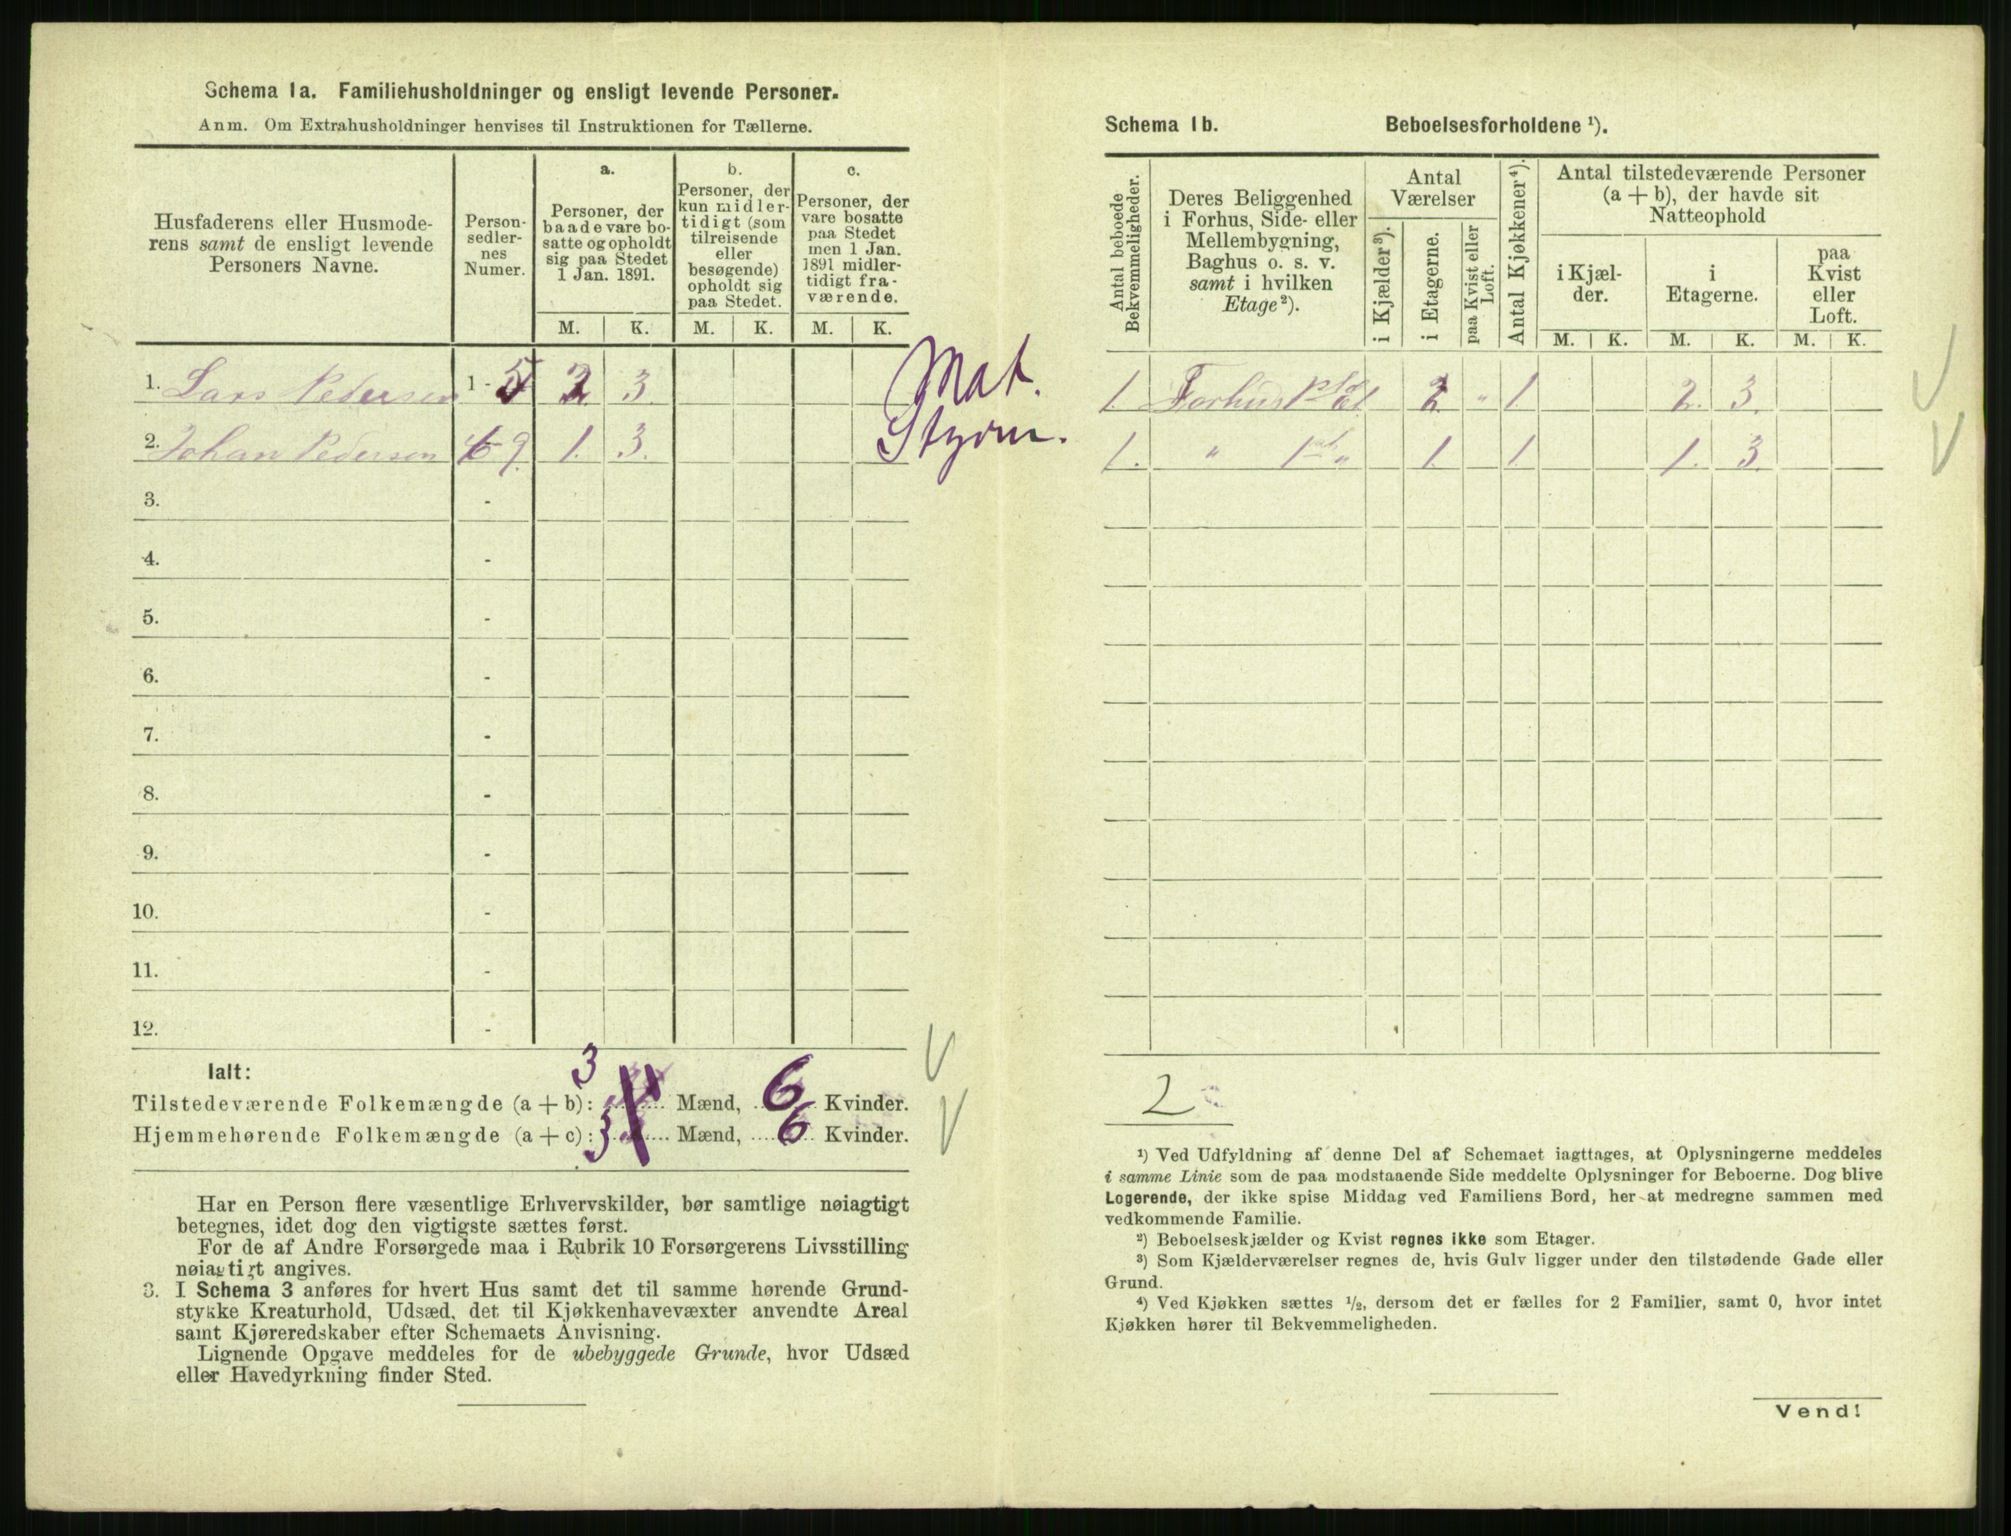 Schema 1a. Familiehusholdninger og ensligt levende Personer.
Anm. Om Extrahusholdninger henvises til Instruktionen for Tællerne.
Husfaderens eller Husmode-
rens samt de ensligt levende
Personers Navne.
Person-
sedler-
nes
Numer.
a.
Personer, der
baade vare bo-
satte og opholdt
sig paa Stedet
1 Jan. 1891.
b.
Personer, der
kun midler-
tidigt (som
tilreisende
eller
besøgende)
opholdt sig
paa Stedet.
c.
Personer, der
vare bosatte
paa Stedet
men 1 Jan.
1891 midler-
tidigt fra-
værende.
M. K. M. K. M. K.
1. Lars Pedersen 1 - 5 2 3. Mat.
2. Johan Pedersen 6-9. 1. 3. Styrm.
3. -
4. -
5. -
6. -
7. -
8. -
9. -
10. -
11. -
12. -
Ialt:
Tilstedeværende Folkemængde (a + b): 3 Mænd, 6 Kvinder.
Hjemmehørende Folkemængde (a + c): 3 Mænd, 6 Kvinder.
Har en Person flere væsentlige Erhvervskilder, bør samtlige nøiagtigt
betegnes, idet dog den vigtigste sættes først.
For de af Andre Forsørgede maa i Rubrik 10 Forsørgerens Livsstilling
nøiagtigt angives.
3. I Schema 3 anføres for hvert Hus samt det til samme hørende Grund-
stykke Kreaturhold, Udsæd, det til Kjøkkenhavevæxter anvendte Areal
samt Kjøreredskaber efter Schemaets Anvisning.
Lignende Opgave meddeles for de ubebyggede Grunde, hvor Udsæd
eller Havedyrkning finder Sted.
Schema 1b. Beboelsesforholdene ¹).
Antal beboede
Bekvemmeligheder.
Deres Beliggenhed
i Forhus, Side- eller
Mellembygning,
Baghus o. s. v.
samt i hvilken
Etage²).
Antal
Værelser
i Kjælder³).
i Etagerne.
paa Kvist eller
Loft.
Antal Kjøkkener⁴).
Antal tilstedeværende Personer
(a + b), der havde sit
Natteophold
i Kjæl-
der.
i
Etagerne.
paa
Kvist
eller
Loft.
M. K. M. K. M. K.
1. Forhus 2 " 1. 2. 3.
1. " 1 " 1. 1. 1. 3.
2
¹) Ved Udfyldning af denne Del af Schemaet iagttages, at Oplysningerne meddeles
i samme Linie som de paa modstaaende Side meddelte Oplysninger for Beboerne. Dog blive
Logerende, der ikke spise Middag ved Familiens Bord, her at medregne sammen med
vedkommende Familie.
²) Beboelseskjælder og Kvist regnes ikke som Etager.
³) Som Kjælderværelser regnes de, hvis Gulv ligger under den tilstødende Gade eller
Grund.
⁴) Ved Kjøkken sættes ½, dersom det er fælles for 2 Familier, samt 0, hvor intet
Kjøkken hører til Bekvemmeligheden.
Vend!